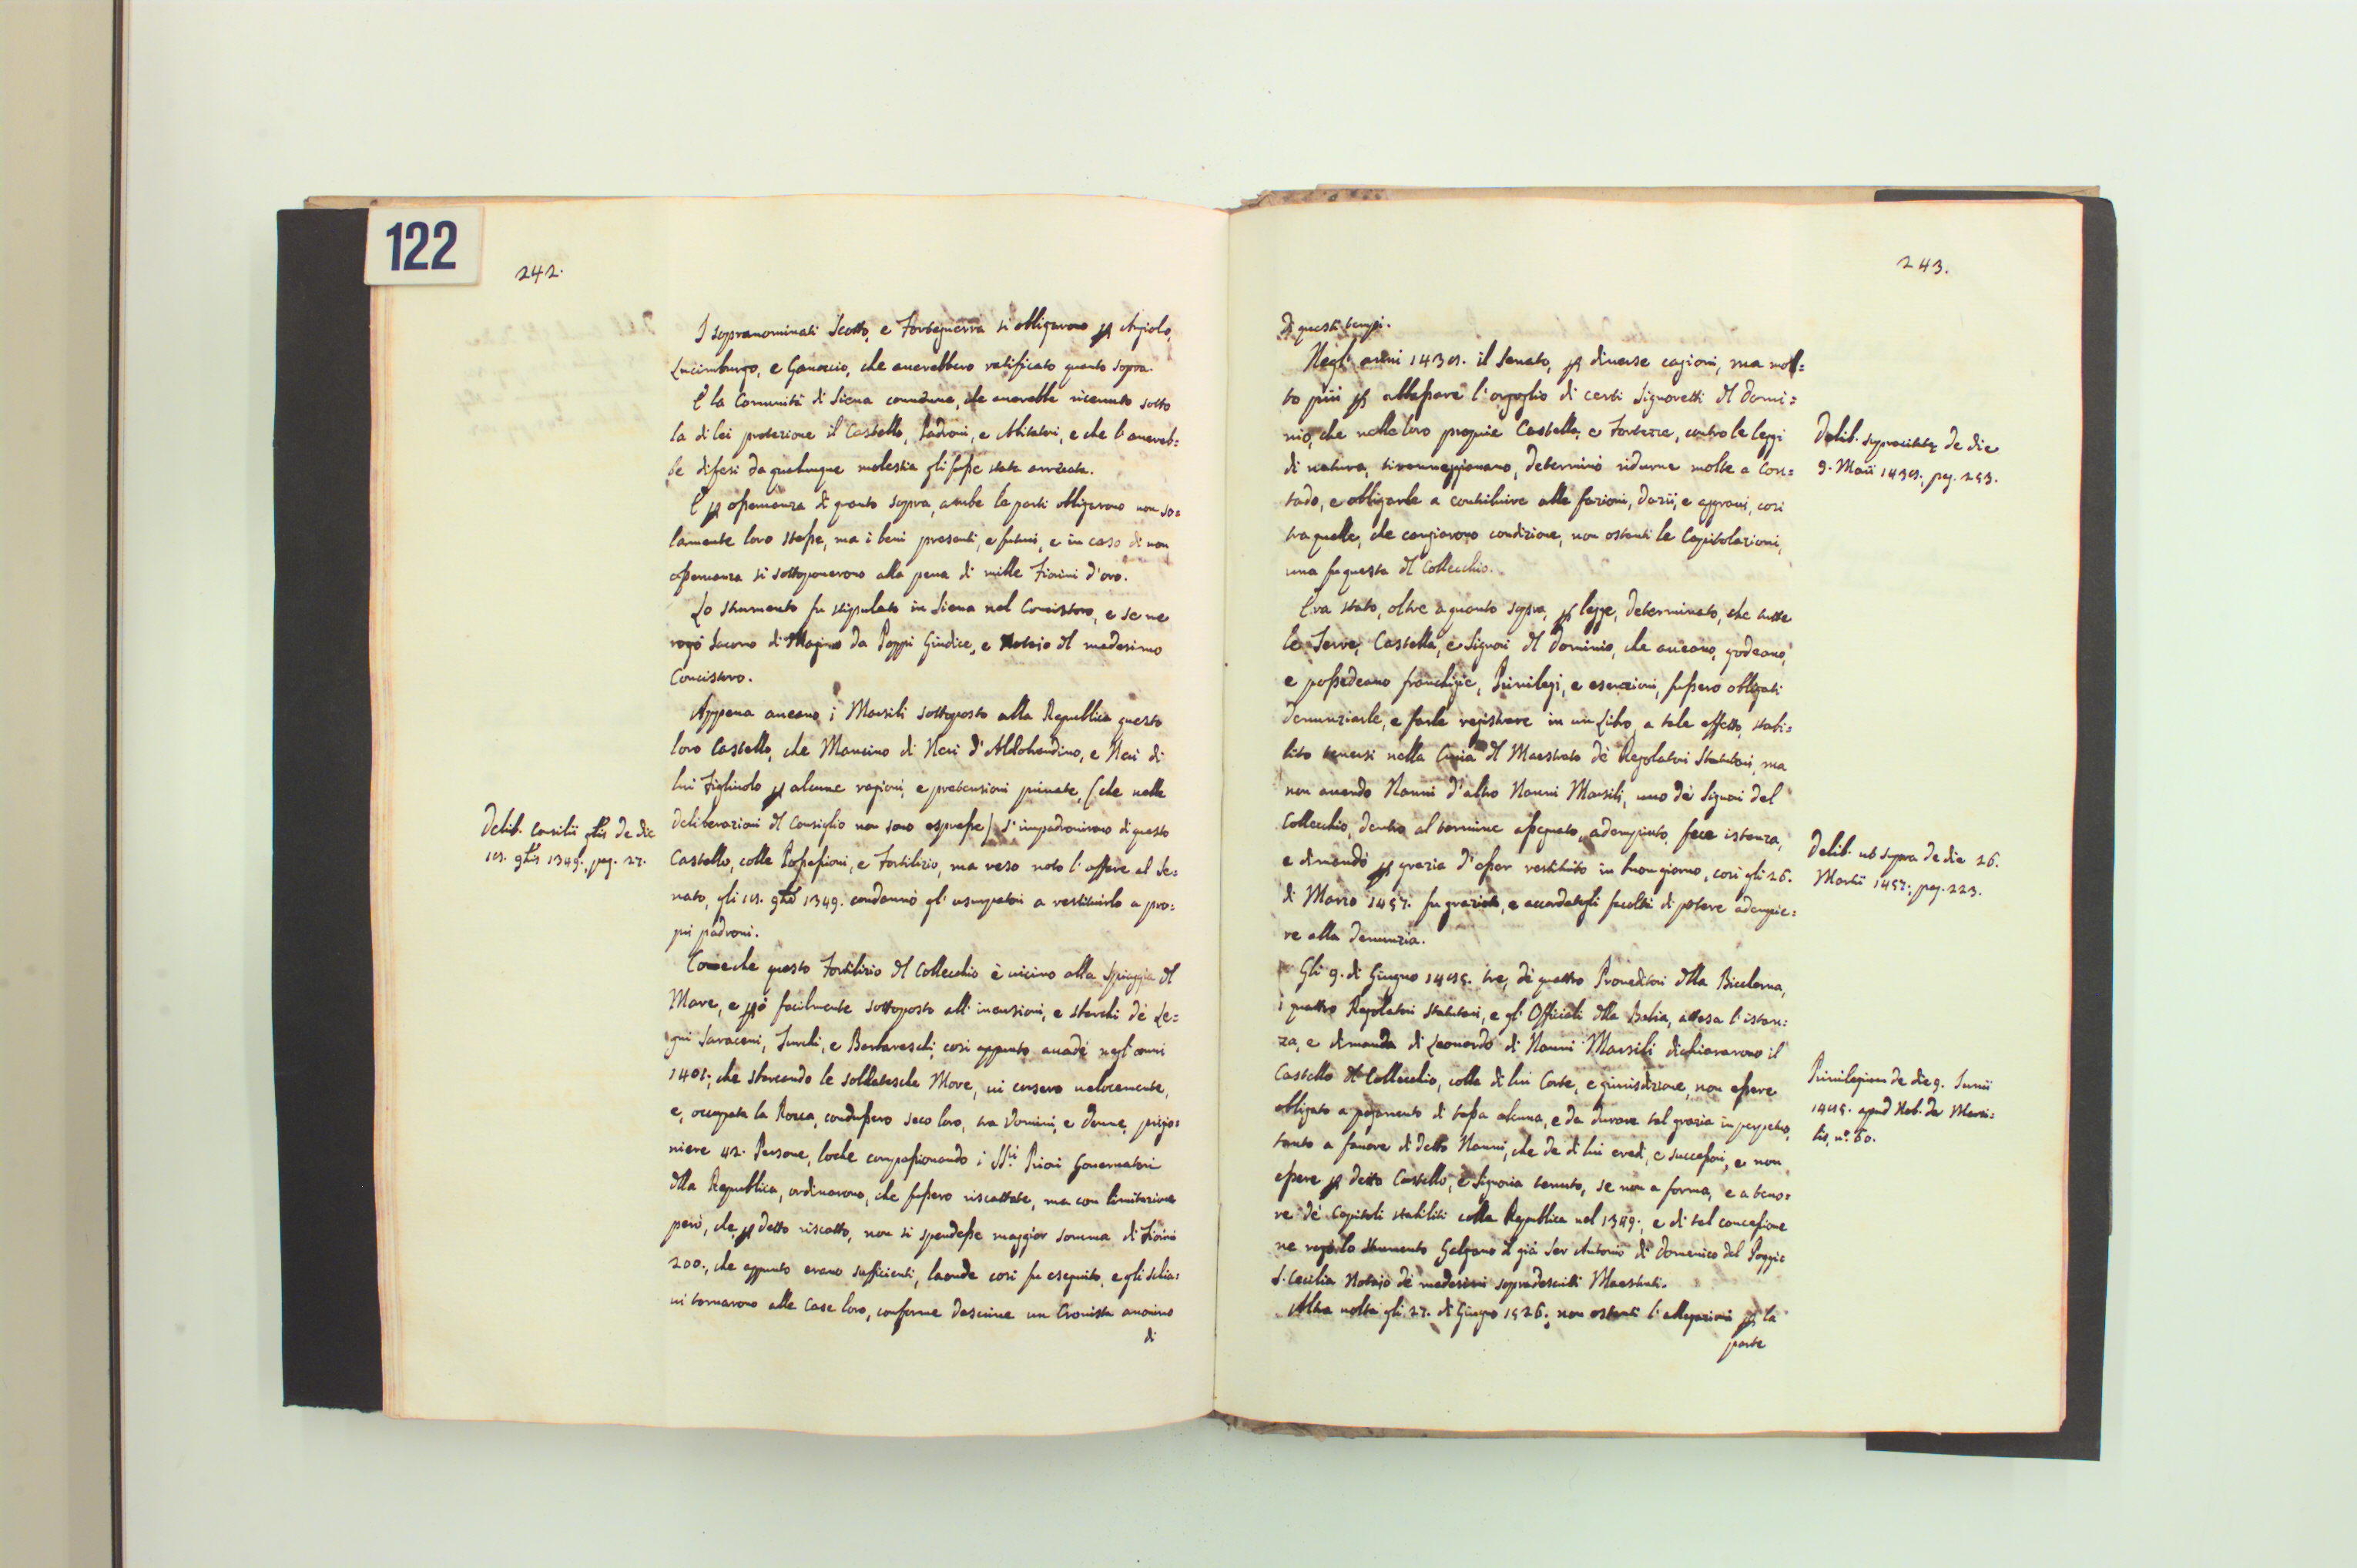 122
242.
I sopranominati Scotto, e Forteguerra si obligarono ꝑ Angiolo,
Lucimburgo, e Ganoccio, che auerebbero ratificato quanto sopra.
E la Comunità di Siena conuenne, che auerebbe riceuuto sotto
la di lei protezione il Castello, Padroni, e Abitatori, e che l'auereb=
be difesi da qualunque molestia gli fuße stata arrecata.
E ꝑ oßeruanza di quanto sopra, ambe le parti obligarono non so=
lamente loro steße, ma i beni presenti, e futuri, e in caso di non
oßeruanza si sottoponerono alla pena di mille Fiorini d'oro.
Lo strumento fu stipulato in Siena nel Concistoro, e se ne
rogò Iacomo di Magino da Poppi Giudice, e Notaio dl medesimo
Concistoro.
Appena aueano i Marsili sottoposto alla Republica questo
loro Castello, che Mancino di Neri d'Aldobrandino, e Neri di
lui Figliuolo ꝑ alcune ragioni, e pretensioni priuate, (che nelle
deliberazioni dl Consiglio non sono espreße) s'impadronirono di questo
Castello, colle Poßeßioni, e Fortilizio, ma reso noto l'affare al Se=
nato, gli 10. 9bre 1349. condannò gl'usurpatori a restituirlo a pro=
pri padroni.
Comeche questo Fortilizio dl Collecchio è uicino alla Spiaggia dl
Mare, e ꝑò facilmente sottoposto all'incursioni, e sbarchi de Le=
gni Saraceni, Turchi, e Barbareschi, cosi appunto accadè negl'anni
1401. che sbarcando le soldatesche More, ui corsero uelocemente,
e, occupata la Rocca, condußero seco loro, tra Uomini, e Donne, prigio=
niere 42. Persone, loche compaßionando i SS.ri Priori Gouernatori
dlla Republica, ordinarono, che fußero riscattate, ma con limitazione
però, che ꝑ detto riscatto, non si spendeße maggior somma di Fiorini
200., che appunto erano sufficienti, laonde cosi fu eseguito, e gli schia=
ui tornarono alle Case loro, conforme descriue un Cronista anonimo
di
Delib. Consilii glis de die
10. 9bris 1349. pag. 27.
243.
di questi tempi.
Negl'anni 1430. il Senato, ꝑ diuerse cagioni, ma mol=
to più ꝑ abbaßare l'orgoglio di certi Signoretti dl Domi=
nio, che nelle loro proprie Castella, e Fortezze, contro le leggi
di natura, tiranneggiauano, determinò ridurne molte a Con=
tado, e obligarle a contribuire alle fazioni, dazii, e aggraui, cosi
tra quelle, che cangiarono condizione, non ostanti le Capitolazioni,
una fu questa dl Collecchio.
Era stato, oltre a quanto sopra, ꝑ legge, determinato, che tutte
le Terre, Castella, e Signori dl Dominio, che aueano, godeano,
e poßedeano franchigie, Priuilegi, e esenzioni, fußero obligati
denunziarle, e farle registrare in un Libro, a tale effetto, stabi=
lito tenersi nella Curia dl Maestrato de Regolatori Statutari, ma
non auendo Nanni d'altro Nanni Marsili, uno de Signori del
Collecchio, dentro al termine aßegnato, adempiuto, fece istanza,
e dimandò ꝑ grazia d'eßer restituito in buon giorno, cosi gli 26.
di Marzo 1457. fu graziato, e accordatagli facoltà di potere adempie=
re alla denunzia.
Gli 9. di Giugno 1495. tre, de quattro Proueditori dlla Biccherna,
i quattro Regolatori Statutari, e gl'Officiali dlla Balia, attesa l'istan=
za, e dimanda di Leonardo di Nanni Marsili dichiararono il
Castello dl Collecchio, colla di lui Corte, e giurisdizione, non eßere
obligato a pagamento di taßa alcuna, e da durare tal grazia in perpetuo,
tanto a fauore di detto Nanni, che de di lui eredi, e succeßori, e non
eßere ꝑ detto Castello, e Signoria tenuto, se non a forma, e a teno=
re de Capitoli stabiliti colla Republica nel 1349. e di tal conceßione
ne rogò lo strumento Galgano dl già Ser Antonio di Domenico dal Poggio
S. Cecilia Notaio de medesimi sopradescritti Maestrati.
Altra uolta gli 27. di Giugno 1526. non ostanti l'allegazioni ꝑ la
parte
Delib. supracitatę de die
9. Maii 1430. pag. 253.
Delib. ut supra de die 26.
Martii 1457. pag. 223.
Priuilegium de die 9. Iunii
1495. apud Nob. de Marsi=
lis, n.º 60.